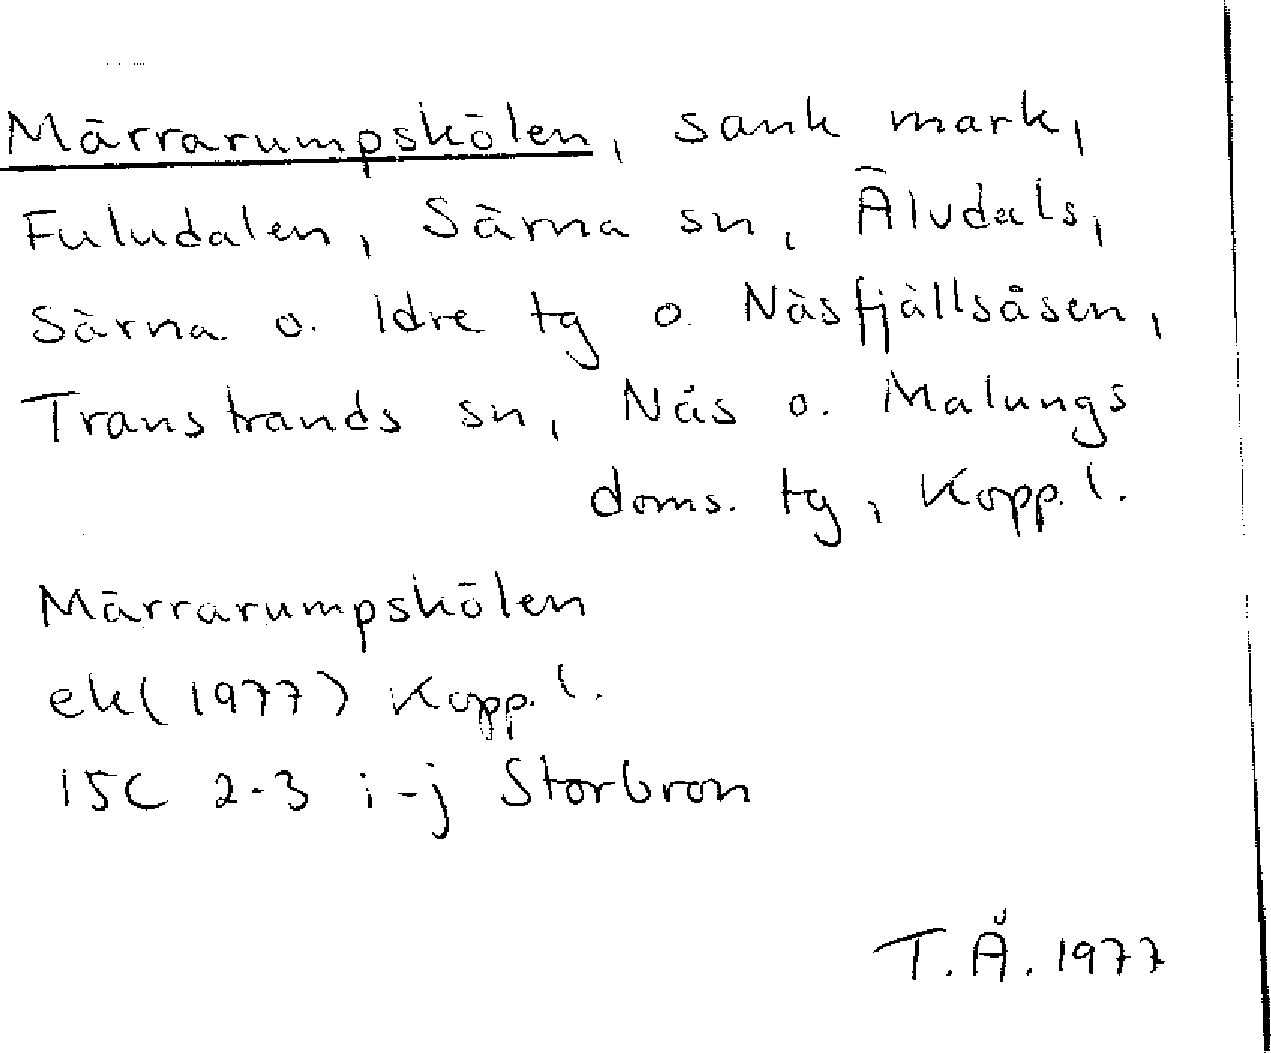 Märrarumpskölen, sank mark,
Fuludalen, Särna sn, Älvdals,
Särna o. Idre tg o. Näsfjällsåsen,
Transtrands sn, Näs o. Malungs
doms. tg, Kopp. l.
Märrarumpskölen
ek(1977) Kopp. l.
15C 2-3 i-j Storbron
T.Å. 1977